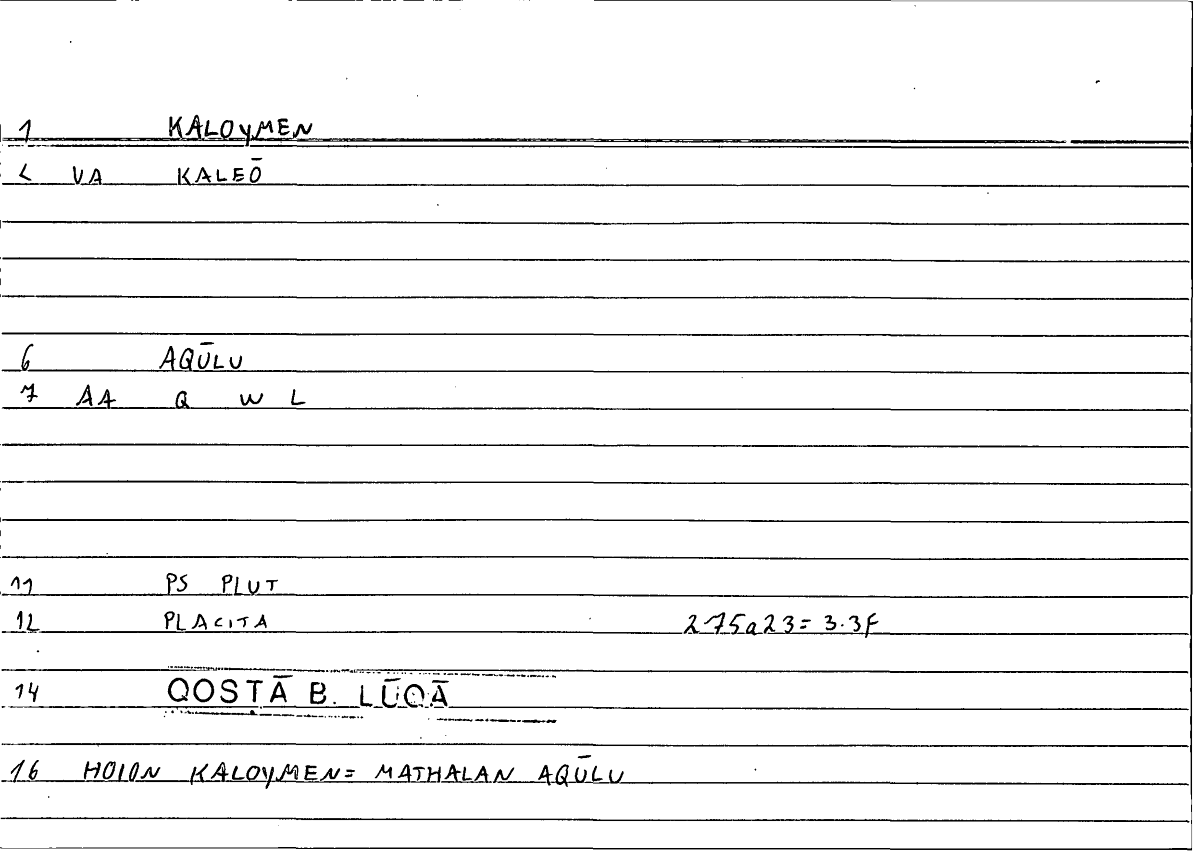 1 KALOYMEN
2 VA KALEŌ
6 AQŪLU
7 AA Q W L
11 PS PLUT
12 PLACITA 275a23=3.3f
14 QOSTĀ B. LŪQĀ
16 HOION KALOYMEN= MATHALAN AQŪLU